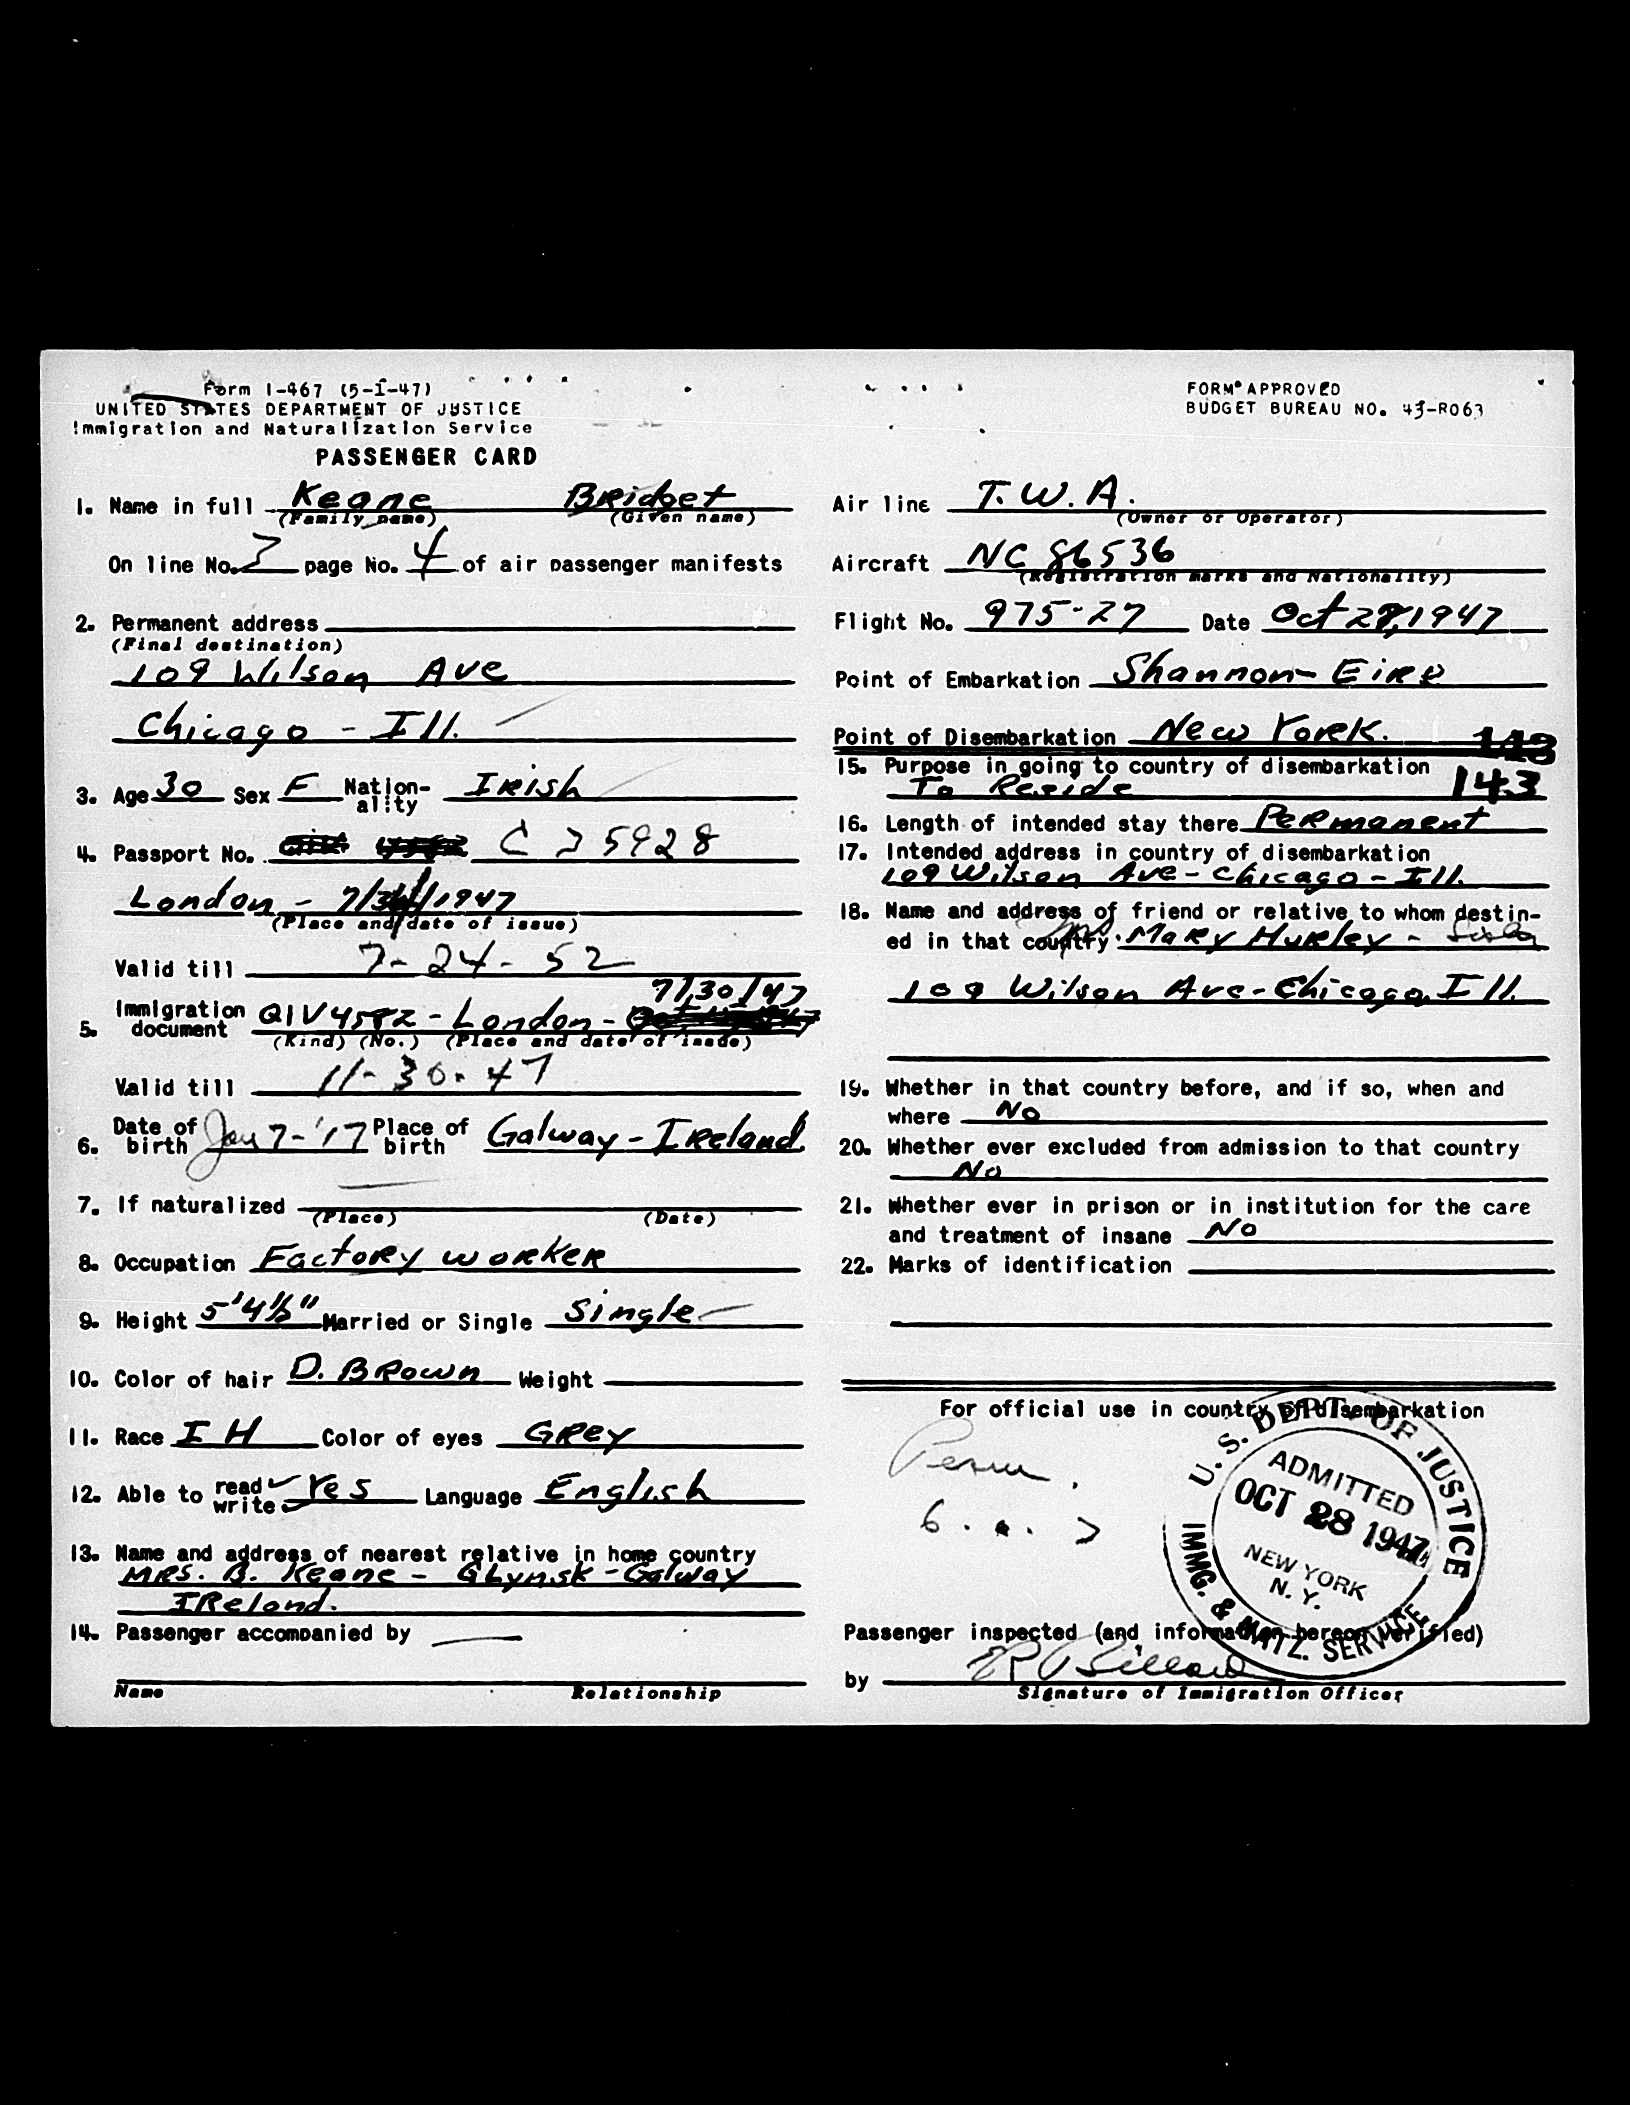 Form I-467 (5-1-47)
UNITED STATES DEPARTMENT OF JUSTICE
Immigration and Naturalization Service
PASSENGER CARD
1. Name in full Keane Bridget
(Family name) (Given name)
On line No. 2 page No. 4 of air passenger manifests
2. Permanent address
(Final destination)
109 Wilson Ave
Chicago - Ill.
3. Age 30 Sex F Nation-
ality Irish
4. Passport No. C 35928
London - 7/ /1947
(Place and date of issue)
Valid till 7-24-52
7/30/47
5. Immigration
document QIV4582 - London -
(Kind) (No.) (Place and date of issue)
Valid till 11-30-47
6. Date of
birth Jan 7-'17 Place of
birth Galway - Ireland.
7. If naturalized
(Place) (Date)
8. Occupation Factory worker
9. Height 5'4½" Married or Single Single
10. Color of hair D. Brown Weight
11. Race I H Color of eyes Grey
12. Able to read
write Yes Language English
13. Name and address of nearest relative in home country
Mrs. B. Keane - Glynsk - Galway
Ireland.
14. Passenger accompanied by
Name Relationship
FORM APPROVED
BUDGET BUREAU NO. 43-R063
Air line T.W.A.
(Owner or Operator)
Aircraft NC 86536
(Registration marks and Nationality)
Flight No. 975-27 Date Oct 28, 1947
Point of Embarkation Shannon - Eire
Point of Disembarkation New York.
143
15. Purpose in going to country of disembarkation
To Reside 143
16. Length of intended stay there Permanent
17. Intended address in country of disembarkation
109 Wilson Ave - Chicago - Ill.
18. Name and address of friend or relative to whom destin-
ed in that country. Mrs Mary Hurley - Sister
109 Wilson Ave - Chicago, Ill.
19. Whether in that country before, and if so, when and
where No
20. Whether ever excluded from admission to that country
No
21. Whether ever in prison or in institution for the care
and treatment of insane No
22. Marks of identification
For official use in country of disembarkation
Perm.
U. S. DEPT. OF JUSTICE
ADMITTED
OCT 28 1947
NEW YORK
N. Y.
IMMG. & NATZ. SERVICE
Passenger inspected (and information hereon verified)
by
Signature of Immigration Officer